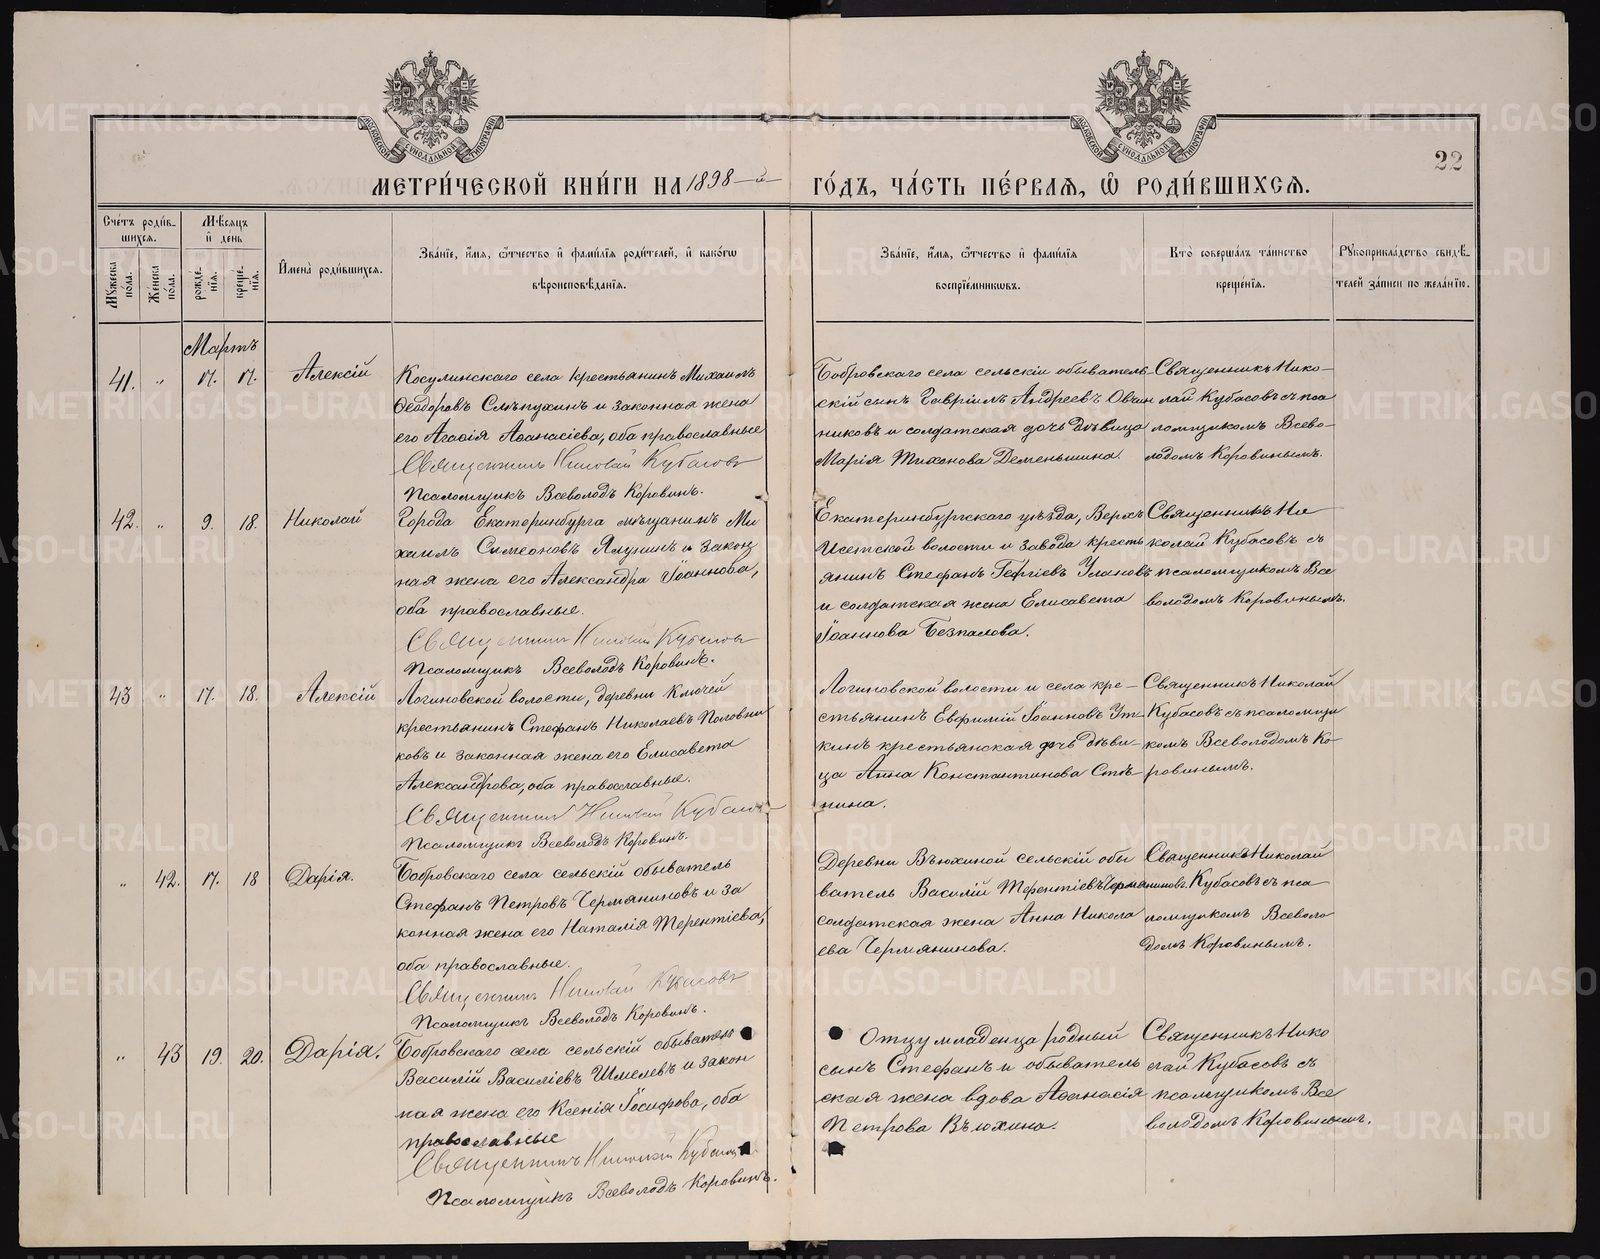 МОСКОВСКОЙ СѴНОДАЛЬНОЙ ТИПОГРАФІИ
МОСКОВСКОЙ СѴНОДАЛЬНОЙ ТИПОГРАФІИ
22
МЕТРИ́ЧЕСКОЙ КНИ́ГИ НА 1898-й ГО́ДЪ, ЧА́СТЬ ПЕ́РВАѦ, Ѿ РОДИ́ВШИХСѦ.
Сче́тъ роди́в-
шихсѧ.
Мѣ́сѧцъ
и҆ де́нь
Мꙋ́жеска
по́ла.
Же́нска
по́ла.
рожде́-
нїѧ.
креще́-
нїѧ.
И҆мена̀ роди́вшихсѧ.
Зва́нїе, и҆́мѧ, ѻ҆́тчество и҆ фами́лїѧ роди́телей, и҆ како́гѡ
вѣроисповѣ́данїѧ.
Зва́нїе, и҆́мѧ, ѻ҆́тчество и҆ фами́лїѧ
воспрїе́мникѡвъ.
Кто̀ соверша́лъ та́инство
креще́нїѧ.
Рꙋкоприкла́дство свидѣ́-
телей за́писи по жела́нїю.
Мартъ
41. " 17. 17. Алексій
Косулинскаго села крестьянинъ Михаилъ
Ѳеодоровъ Слѣпухинъ и законная жена
его Агаѳія Аѳанасіева, оба православные
Священникъ Николай Кубасовъ
Псаломщикъ Всеволодъ Коровинъ.
Бобровскаго села сельскій обыватель-
скій сынъ Гавріилъ Андреевъ Овчин
никовъ и солдатская дочь дѣвица
Марія Тихонова Деменьшина.
Священникъ Нико-
лай Кубасовъ съ пса
ломщикомъ Всево-
лодомъ Коровинымъ.
42. " 9. 18. Николай
Города Екатеринбурга мѣщанинъ Ми
хаилъ Симеоновъ Ялунинъ и закон
ная жена его Александра Іоаннова,
оба православные.
Священникъ Николай Кубасовъ
Псаломщикъ Всеволодъ Коровинъ.
Екатеринбургскаго уѣзда, Верхъ
Исетской волости и завода кресть
янинъ Стефанъ Георгіевъ Улановъ
и солдатская жена Елисавета
Іоаннова Безпалова.
Священникъ Ни
колай Кубасовъ съ
псаломщикомъ Все
володомъ Коровинымъ.
43 " 17. 18. Алексій
Логиновской волости, деревни Ключей
крестьянинъ Стефанъ Николаевъ Половни
ковъ и законная жена его Елисавета
Александрова, оба православные.
Священникъ Николай Кубасовъ
Псаломщикъ Всеволодъ Коровинъ.
Логиновской волости и села кре-
стьянинъ Евфимій Іоанновъ Ут-
кинъ крестьянская дочь дѣви-
ца Анна Константинова Стѣ-
пина.
Священникъ Николай
Кубасовъ съ псаломщи
комъ Всеволодомъ Ко-
ровинымъ.
" 42. 17. 18 Дарія.
Бобровскаго села сельскій обыватель
Стефанъ Петровъ Чермяниновъ и за
конная жена его Наталія Терентіева,
оба православные.
Священникъ Николай Кубасовъ
Псаломщикъ Всеволодъ Коровинъ.
Деревни Вьюхиной сельскій обы
ватель Василій Терентіевъ Чермяниновъ.
солдатская жена Анна Никола
ева Чермянинова.
Священникъ Николай
Кубасовъ съ пса
ломщикомъ Всеволо
домъ Коровинымъ.
" 43 19. 20. Дарія.
Бобровскаго села сельскій обыватель
Василій Василіевъ Шмелевъ и закон
ная жена его Ксенія Іосифова, оба
православные
Священникъ Николай Кубасовъ
Псаломщикъ Всеволодъ Коровинъ.
Отцу младенца родный
сынъ Стефанъ и обыватель
ская жена вдова Аѳанасія
Петрова Вьюхина.
Священникъ Нико
лай Кубасовъ съ
псаломщикомъ Все
володомъ Коровинымъ.
METRIKI.GASO-URAL.RU